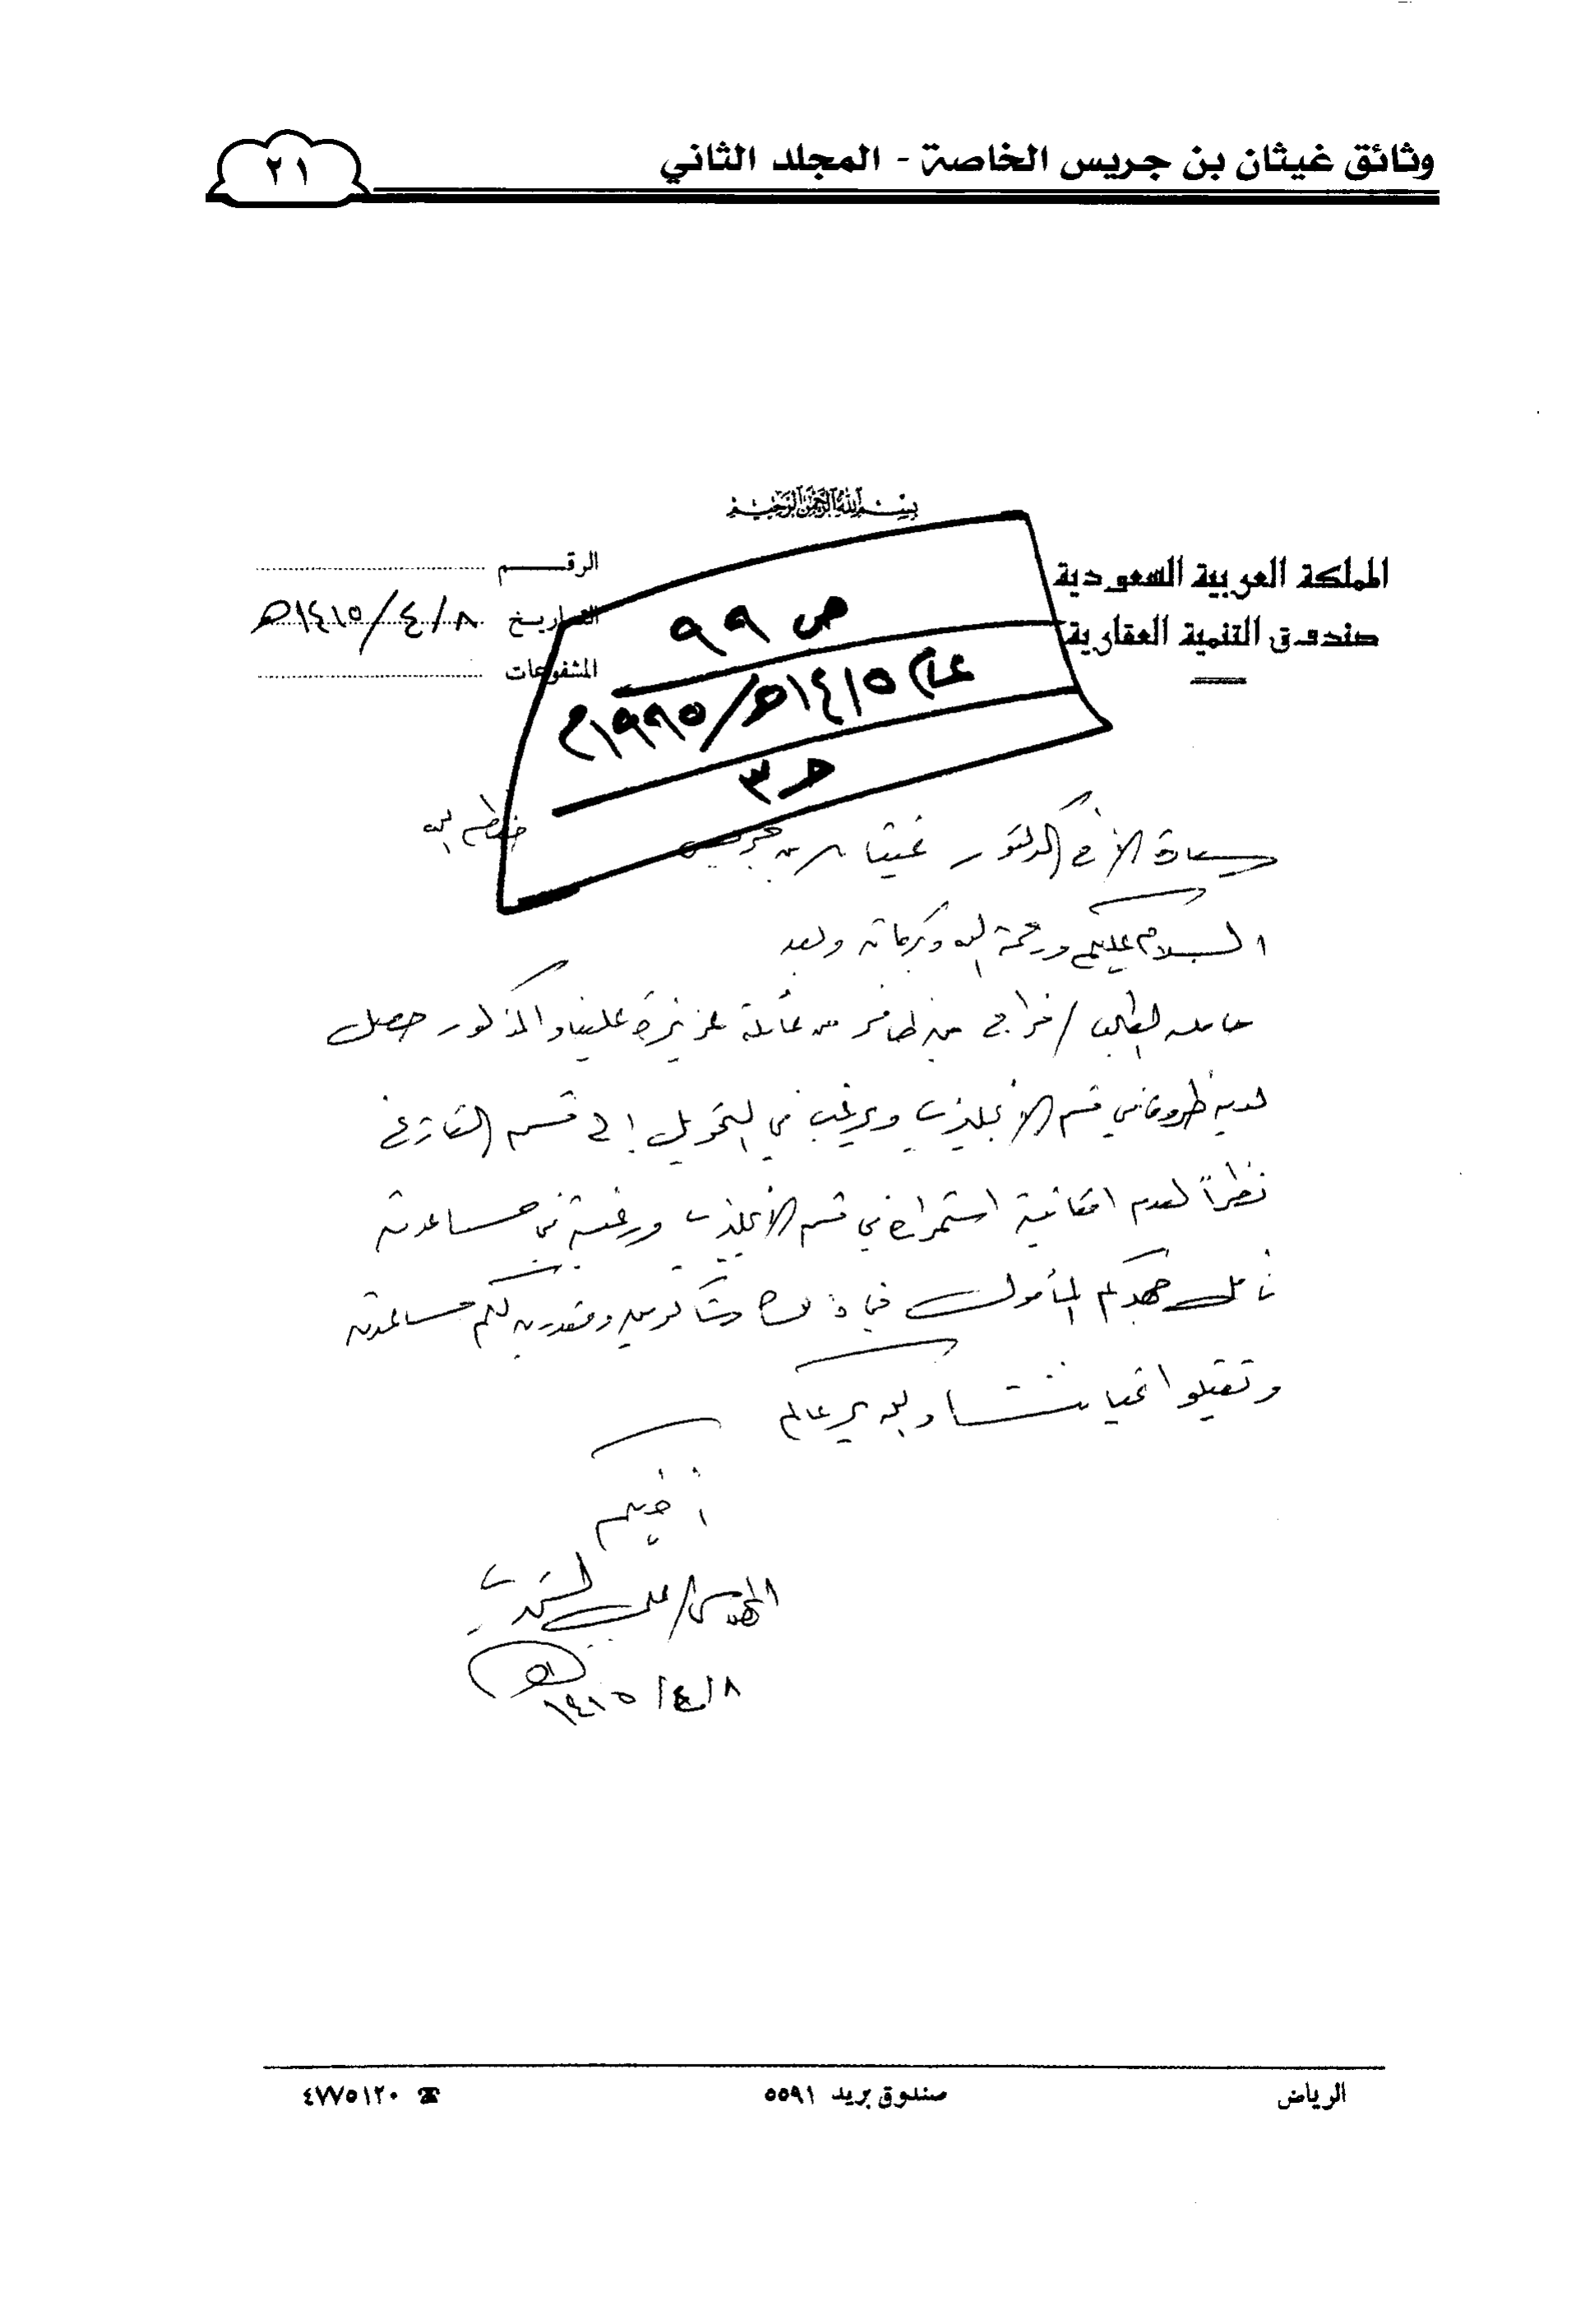 وثائق غيثان بن جريس الخاصة - المجلد الثاني
٢١
بسم الله الرحمن الرحيم
المملكة العربية السعودية
صندوق التنمية العقارية
الرقم
التاريخ ٨/٤/١٤١٥هـ
المشفوعات
ص ٩٩
عام ١٤١٥هـ/١٩٩٥م
حـ ٣
سعادة الأخ الدكتور غيثان بن جريس حفظكم الله
السلام عليكم ورحمة الله وبركاته وبعد
حامله الطالب / فراج بن ظافر من عائلة عزيزة علينا والمذكور حصل
لديه ظروف في قسم الإنجليزي ويرغب في التحويل إلى قسم التاريخ
نظراً لعدم امكانية استمراره في قسم الانجليزي ورغبة في مساعدته
نأمل جهدكم المأمول في ذلك وشاكرين ومقدرين لكم مساعدته
وتقبلوا تحياتنا والله يرعاكم
أخيكم
المهندس/ علي
٨/٤/١٤١٥هـ
الرياض
صندوق بريد ٥٥٩١
☎ ٤٧٧٥١٢٠